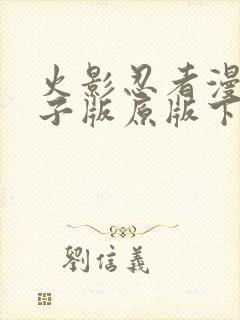 火影忍者漫
子版原版下
劉信義